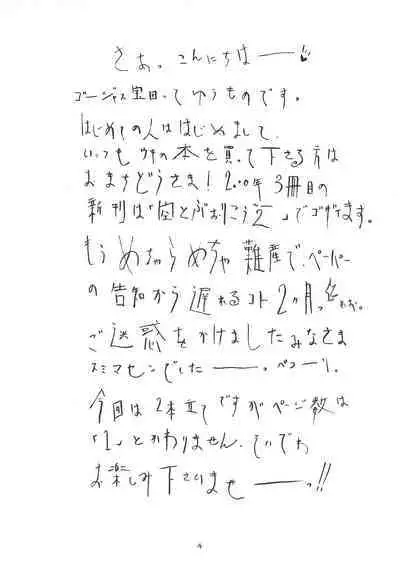 さぁ。こんにちはーー!
ゴージャス宝田ってゆうものです。
はじめての人ははじめまして、
いつも ウチの本を買って下さる方は
おまちどうさま!2000年 3冊目の
新刊は「空とぶぉりこう2」でゴザイます。
もうめちゃらめちゃ難産で、ペーパー
の告知から遅れるコト2ヶ月っ
ご迷惑をかけましたみなさま
スミマセンでしたーーっ。ペコーリ。
今回は2本立てですがページ数は
「1」とかわりません、ていでわ
お楽しみ下さいませーーっ!!
4